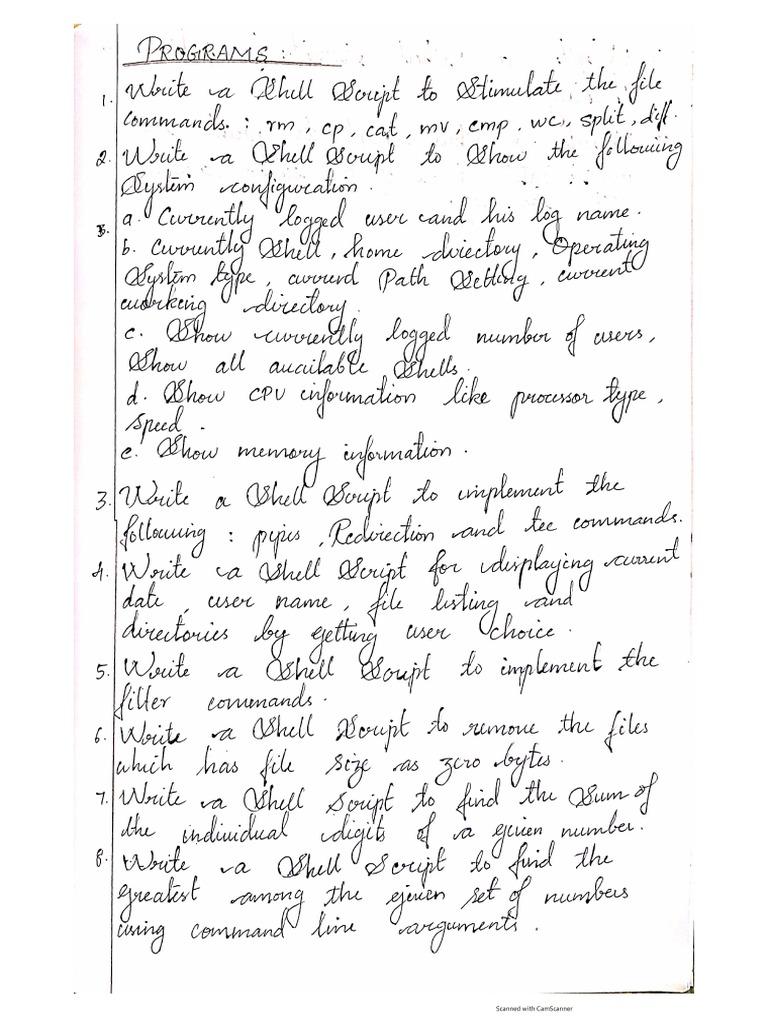 PROGRAMS:
1. Write a Shell Script to Stimulate the file
commands : rm, cp, cat, mv, cmp, wc, split, diff.
2. Write a Shell Script to Show the following
System configuration.
a. Currently logged user and his log name.
3. b. Currently Shell, home directory, Operating
System type, current Path Setting, current
working directory.
c. Show currently logged number of users,
Show all available Shells.
d. Show CPU information like processor type,
speed.
e. Show memory information.
3. Write a Shell Script to implement the
following : pipes, Redirection and tee commands.
4. Write a Shell Script for displaying current
date, user name, file listing and
directories by getting user choice.
5. Write a Shell Script to implement the
filter commands.
6. Write a Shell Script to remove the files
which has file size as zero bytes.
7. Write a Shell Script to find the Sum of
the individual digits of a given number.
8. Write a Shell Script to find the
greatest among the given set of numbers
using command line arguments.
Scanned with CamScanner